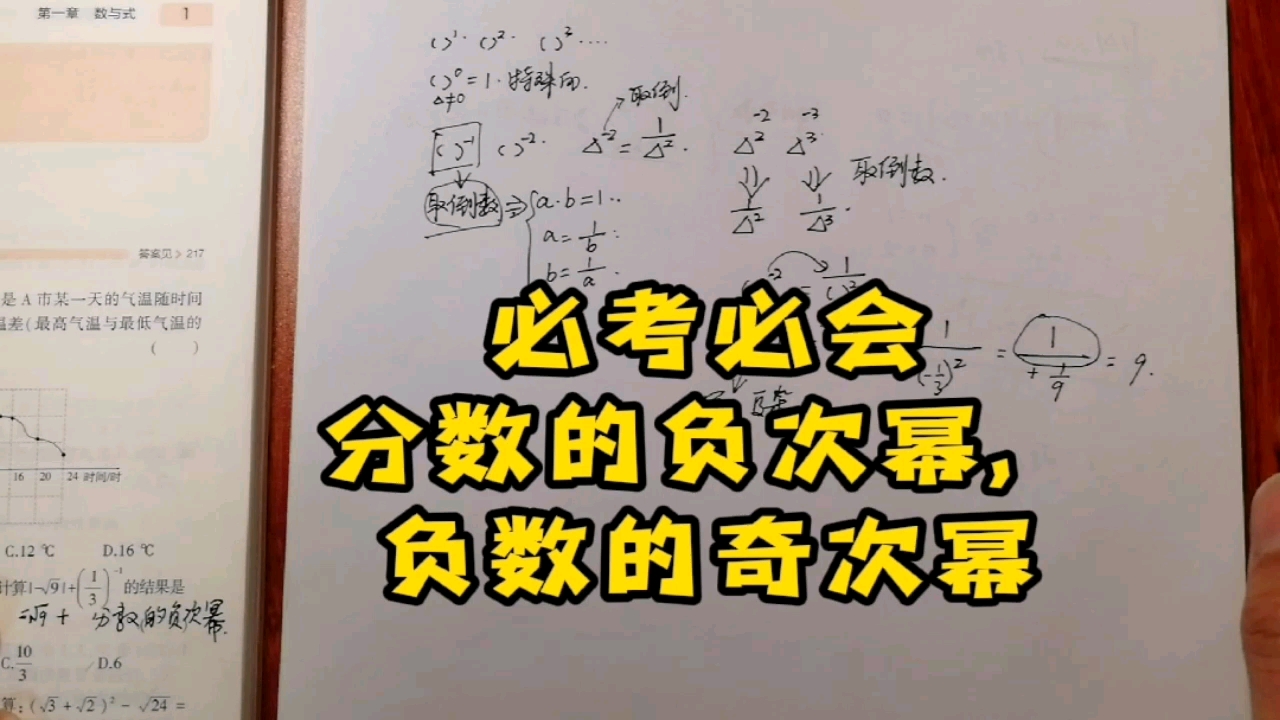 第一章 数与式 1
答案见>217
是A市某一天的气温随时间
温差(最高气温与最低气温的
( )
16 20 24 时间/时
C.12 ℃ D.16 ℃
计算|-√9|+(1/3)^-1 的结果是
-√9 + 分数的负次幂.
C.10/3 D.6
算:(√3+√2)²-√24=
( )^1· ( )^2· ( )^3····
( )^0=1·特殊的.
△≠0
取倒.
( )^-1 ( )^-2· △^-2=1/△^2·
取倒数⇒{a·b=1··
a=1/b·
b=1/a·
-2 -3
△^2 △^3·
取倒数.
1/△^2 1/△^3·
-2 = 1/( )^2
1/(-1/3)^2 = 1/(+1/9) = 9.
必考必会
分数的负次幂,
负数的奇次幂